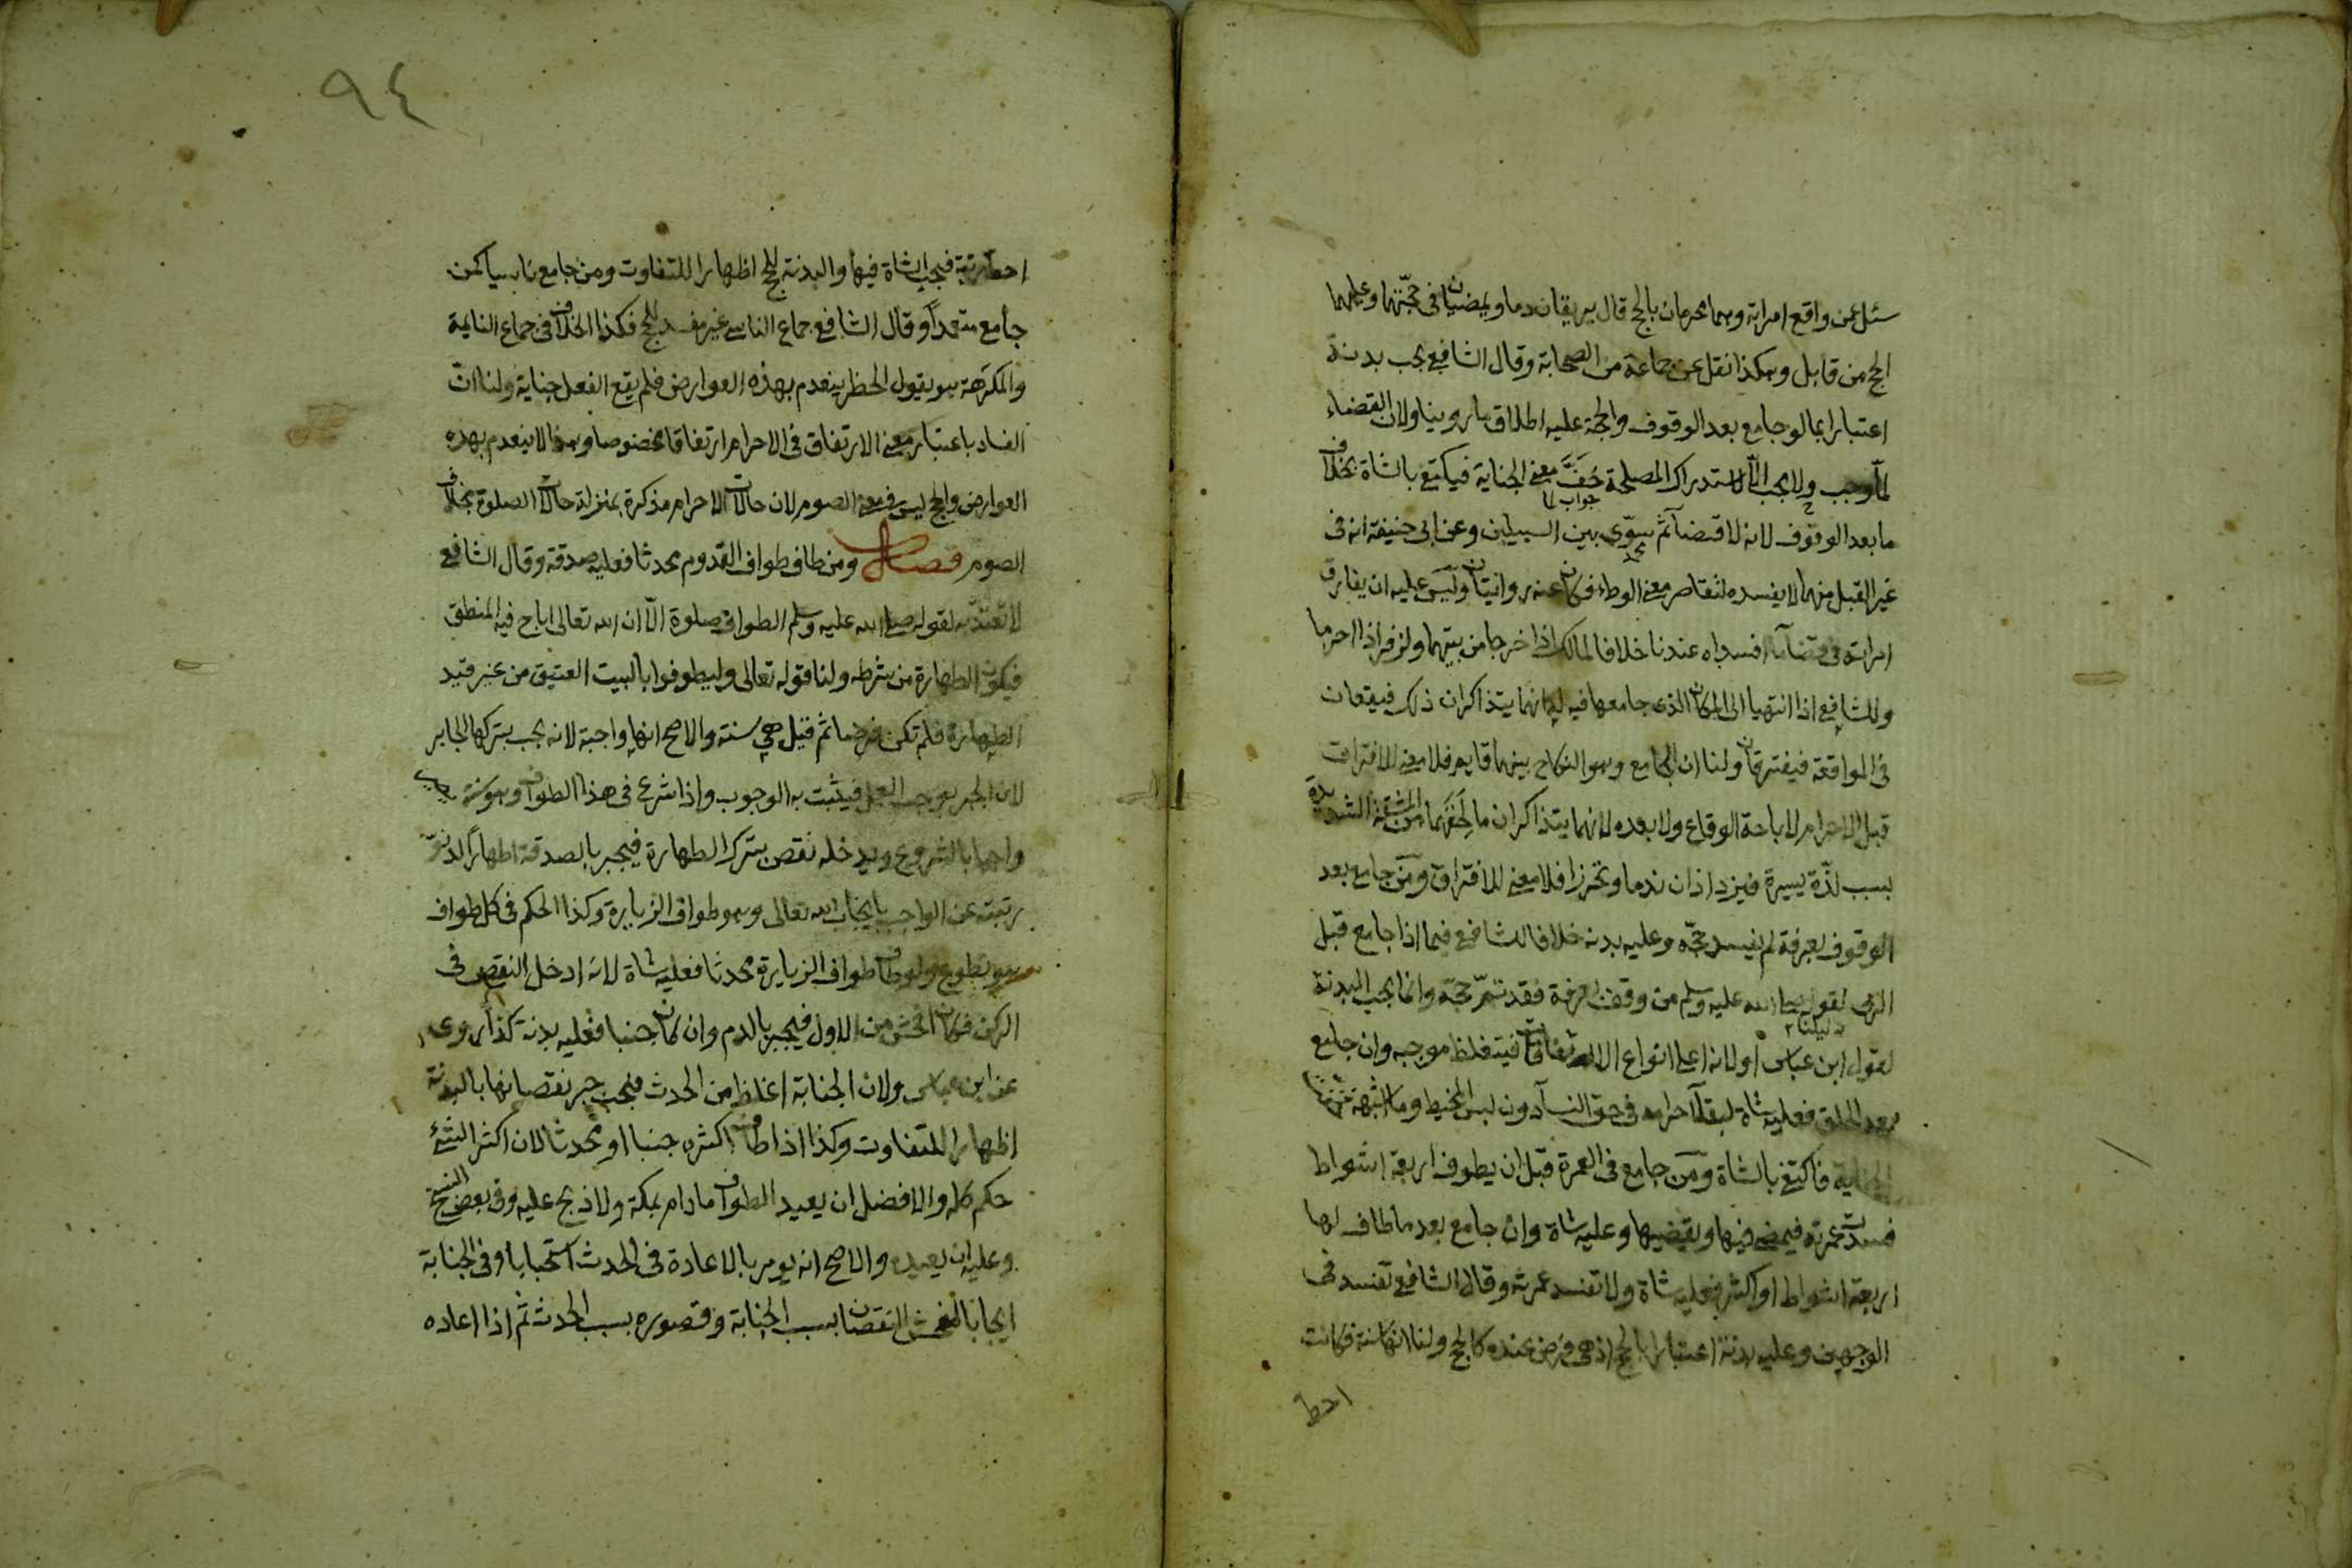 سئل عمن واقع امراته وهما محرمان بالحج قال يريقان دما ويمضيان في حجتهما وعليهما
الحج من قابل وهكذا نقل عن جماعة من الصحابة وقال الشافعي يجب بدنة
اعتبارا بما لو جامع بعد الوقوف والحجة عليه اطلاق ما روينا ولان القضاء
لما وجب ولا يجب الا لاستدراك المصلحة خف معنى الجناية فيكتفى بالشاة بخلاف
جواب لما
ما بعد الوقوف لانه لا قضاء ثم سوى بين السبيلين وعن ابي حنيفة انه في
غير القبل منهما لا يفسده لتقاصر معنى الوطء فكان عنه روايتان وليس عليه ان يفارق
امراته في قضاء ما افسداه عندنا خلافا لمالك اذا خرجا من بيتهما ولزفر اذا احرما
وللشافعي اذا انتهيا الى المكان الذي جامعها فيه لهم انهما يتذاكران ذلك فيقعان
في المواقعة فيفترقان ولنا ان الجامع وهو النكاح بينهما قايم فلا معنى للافتراق
قبل الاحرام لاباحة الوقاع ولا بعده لانهما يتذاكران ما لحقهما من المشقة الشديدة
بسبب لذة يسيرة فيزدادان ندما وتحرزا فلا معنى للافتراق ومن جامع بعد
الوقوف بعرفة لم يفسد حجه وعليه بدنة خلافا للشافعي فيما اذا جامع قبل
الرمى لقوله صلى الله عليه وسلم من وقف بعرفة فقد تم حجه وانما يجب البدنة
دليلنا
لقول ابن عباس او لانه اعلى انواع الارتفاقات فيتغلظ موجبه وان جامع
بعد الحلق فعليه شاة لبقاء احرامه في حق النساء دون لبس المخيط وما اشبهه
الجناية فاكتفى بالشاة ومن جامع في العمرة قبل ان يطوف اربعة اشواط
فسدت عمرته فيمضى فيها ويقضيها وعليه شاة وان جامع بعد ما طاف لها
اربعة اشواط او اكثر فعليه شاة ولا تفسد عمرته وقال الشافعي تفسد في
الوجهين وعليه بدنة اعتبارا بالحج اذ هى فرض عنده كالحج ولنا انها سنة فكانت
احط
٩٤
احط رتبة فيجب الشاة فيها والبدنة في الحج اظهارا للتفاوت ومن جامع ناسيا كمن
جامع متعمدا وقال الشافعي جماع الناسي غير مفسد للحج فكذا الخلاف في جماع النايمة
والمكرهة هو يقول الحظر ينعدم بهذه العوارض فلم يقع الفعل جناية ولنا ان
الفساد باعتبار معنى الارتفاق في الاحرام ارتفاقا مخصوصا وهذا لا ينعدم بهذه
العوارض والحج ليس في معنى الصوم لان حالات الاحرام مذكرة بمنزلة حالات الصلوة بخلاف
الصوم فصل ومن طاف طواف القدوم محدثا فعليه صدقة وقال الشافعي
لا يعتد به لقوله صلى الله عليه وسلم الطواف صلوة الا ان الله تعالى اباح فيه المنطق
فيكون الطهارة من شرطه ولنا قوله تعالى وليطوفوا بالبيت العتيق من غير قيد
الطهارة فلم تكن فرضا ثم قيل هي سنة والاصح انها واجبة لانه يجب بتركها الجابر
لان الخبر يوجب العمل فيثبت به الوجوب واذا شرع في هذا الطواف وهو سنة يصير
واجبا بالشروع ويدخله نقص بترك الطهارة فيجبر بالصدقة اظهارا لدنو
رتبته عن الواجب بايجاب الله تعالى وهو طواف الزيارة وكذا الحكم في كل طواف
هو تطوع ولو طاف طواف الزيارة محدثا فعليه شاة لانه ادخل النقص في
الركن فكان افحش من الاول فيجبر بالدم وان كان جنبا فعليه بدنة كذا روى
عن ابن عباس ولان الجنابة اغلظ من الحدث فيجب جبر نقصانها بالبدنة
اظهارا للتفاوت وكذا اذا طاف اكثره جنبا او محدثا لان اكثر الشئ
حكم كله والافضل ان يعيد الطواف مادام بمكة ولا ذبح عليه وفي بعض النسخ
وعليه ان يعيده والاصح انه يومر بالاعادة في الحدث استحبابا وفي الجنابة
ايجابا لفحش النقصان بسبب الجنابة وقصوره بسبب الحدث ثم اذا اعاده